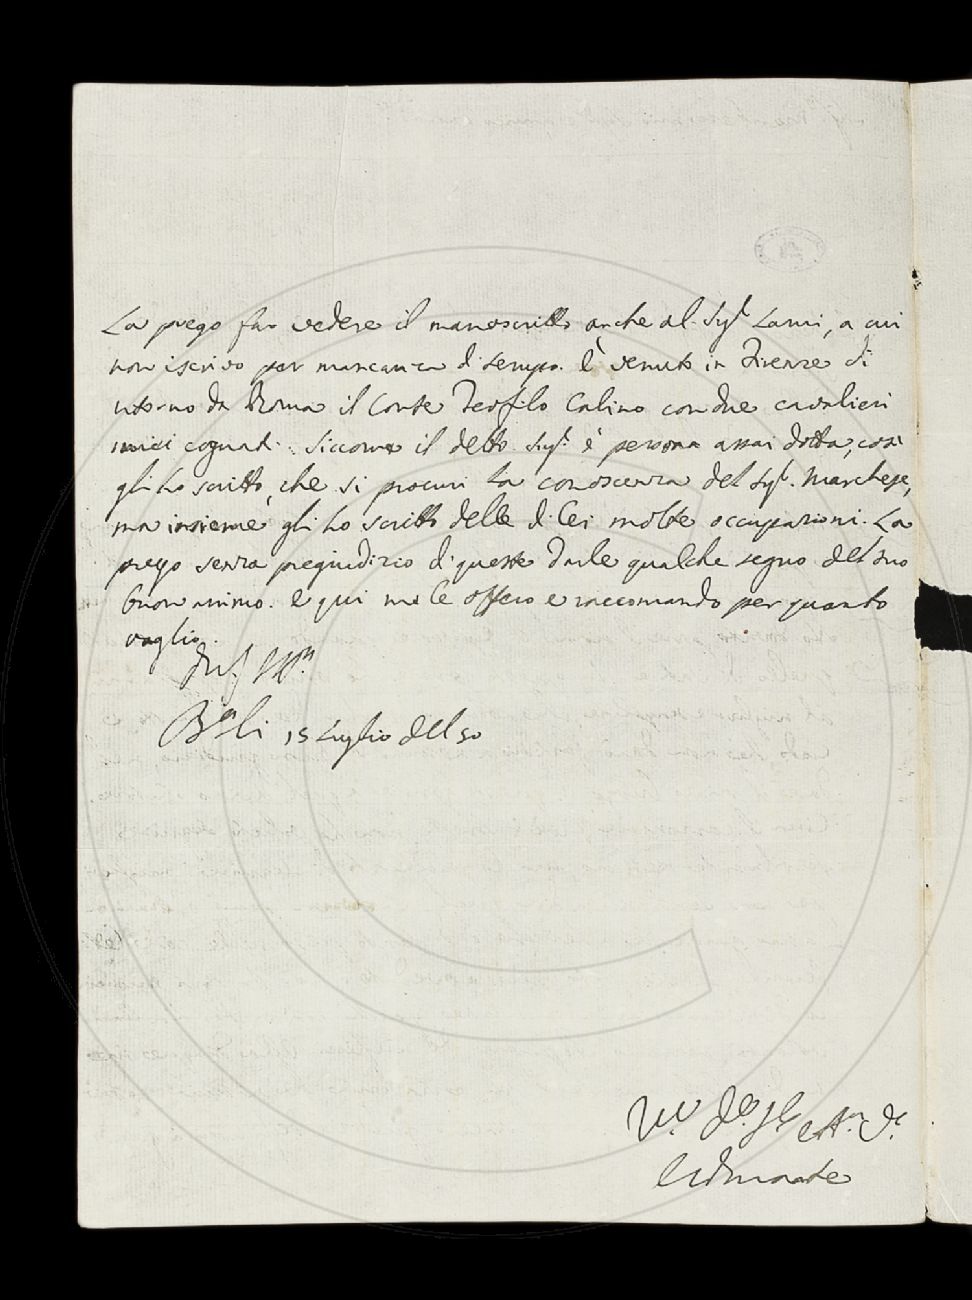 La prego far vedere il manoscritto anche al Sig.r Lami, a cui
non iscrivo per mancanza di tempo. È venuto in Firenze di
ritorno da Roma il Conte Teofilo Calino con due cavalieri
miei cognati. Siccome il detto Sig.r è persona assai dotta, così
gli ho scritto, che si procuri la conoscenza del Sig.r Marchese,
ma insieme gli ho scritto delle di lei molte occupazioni. La
prego senza pregiudizio di queste darle qualche segno del suo
buon animo. E qui me le offero e raccomando per quanto
vaglio.
15 Luglio del 50